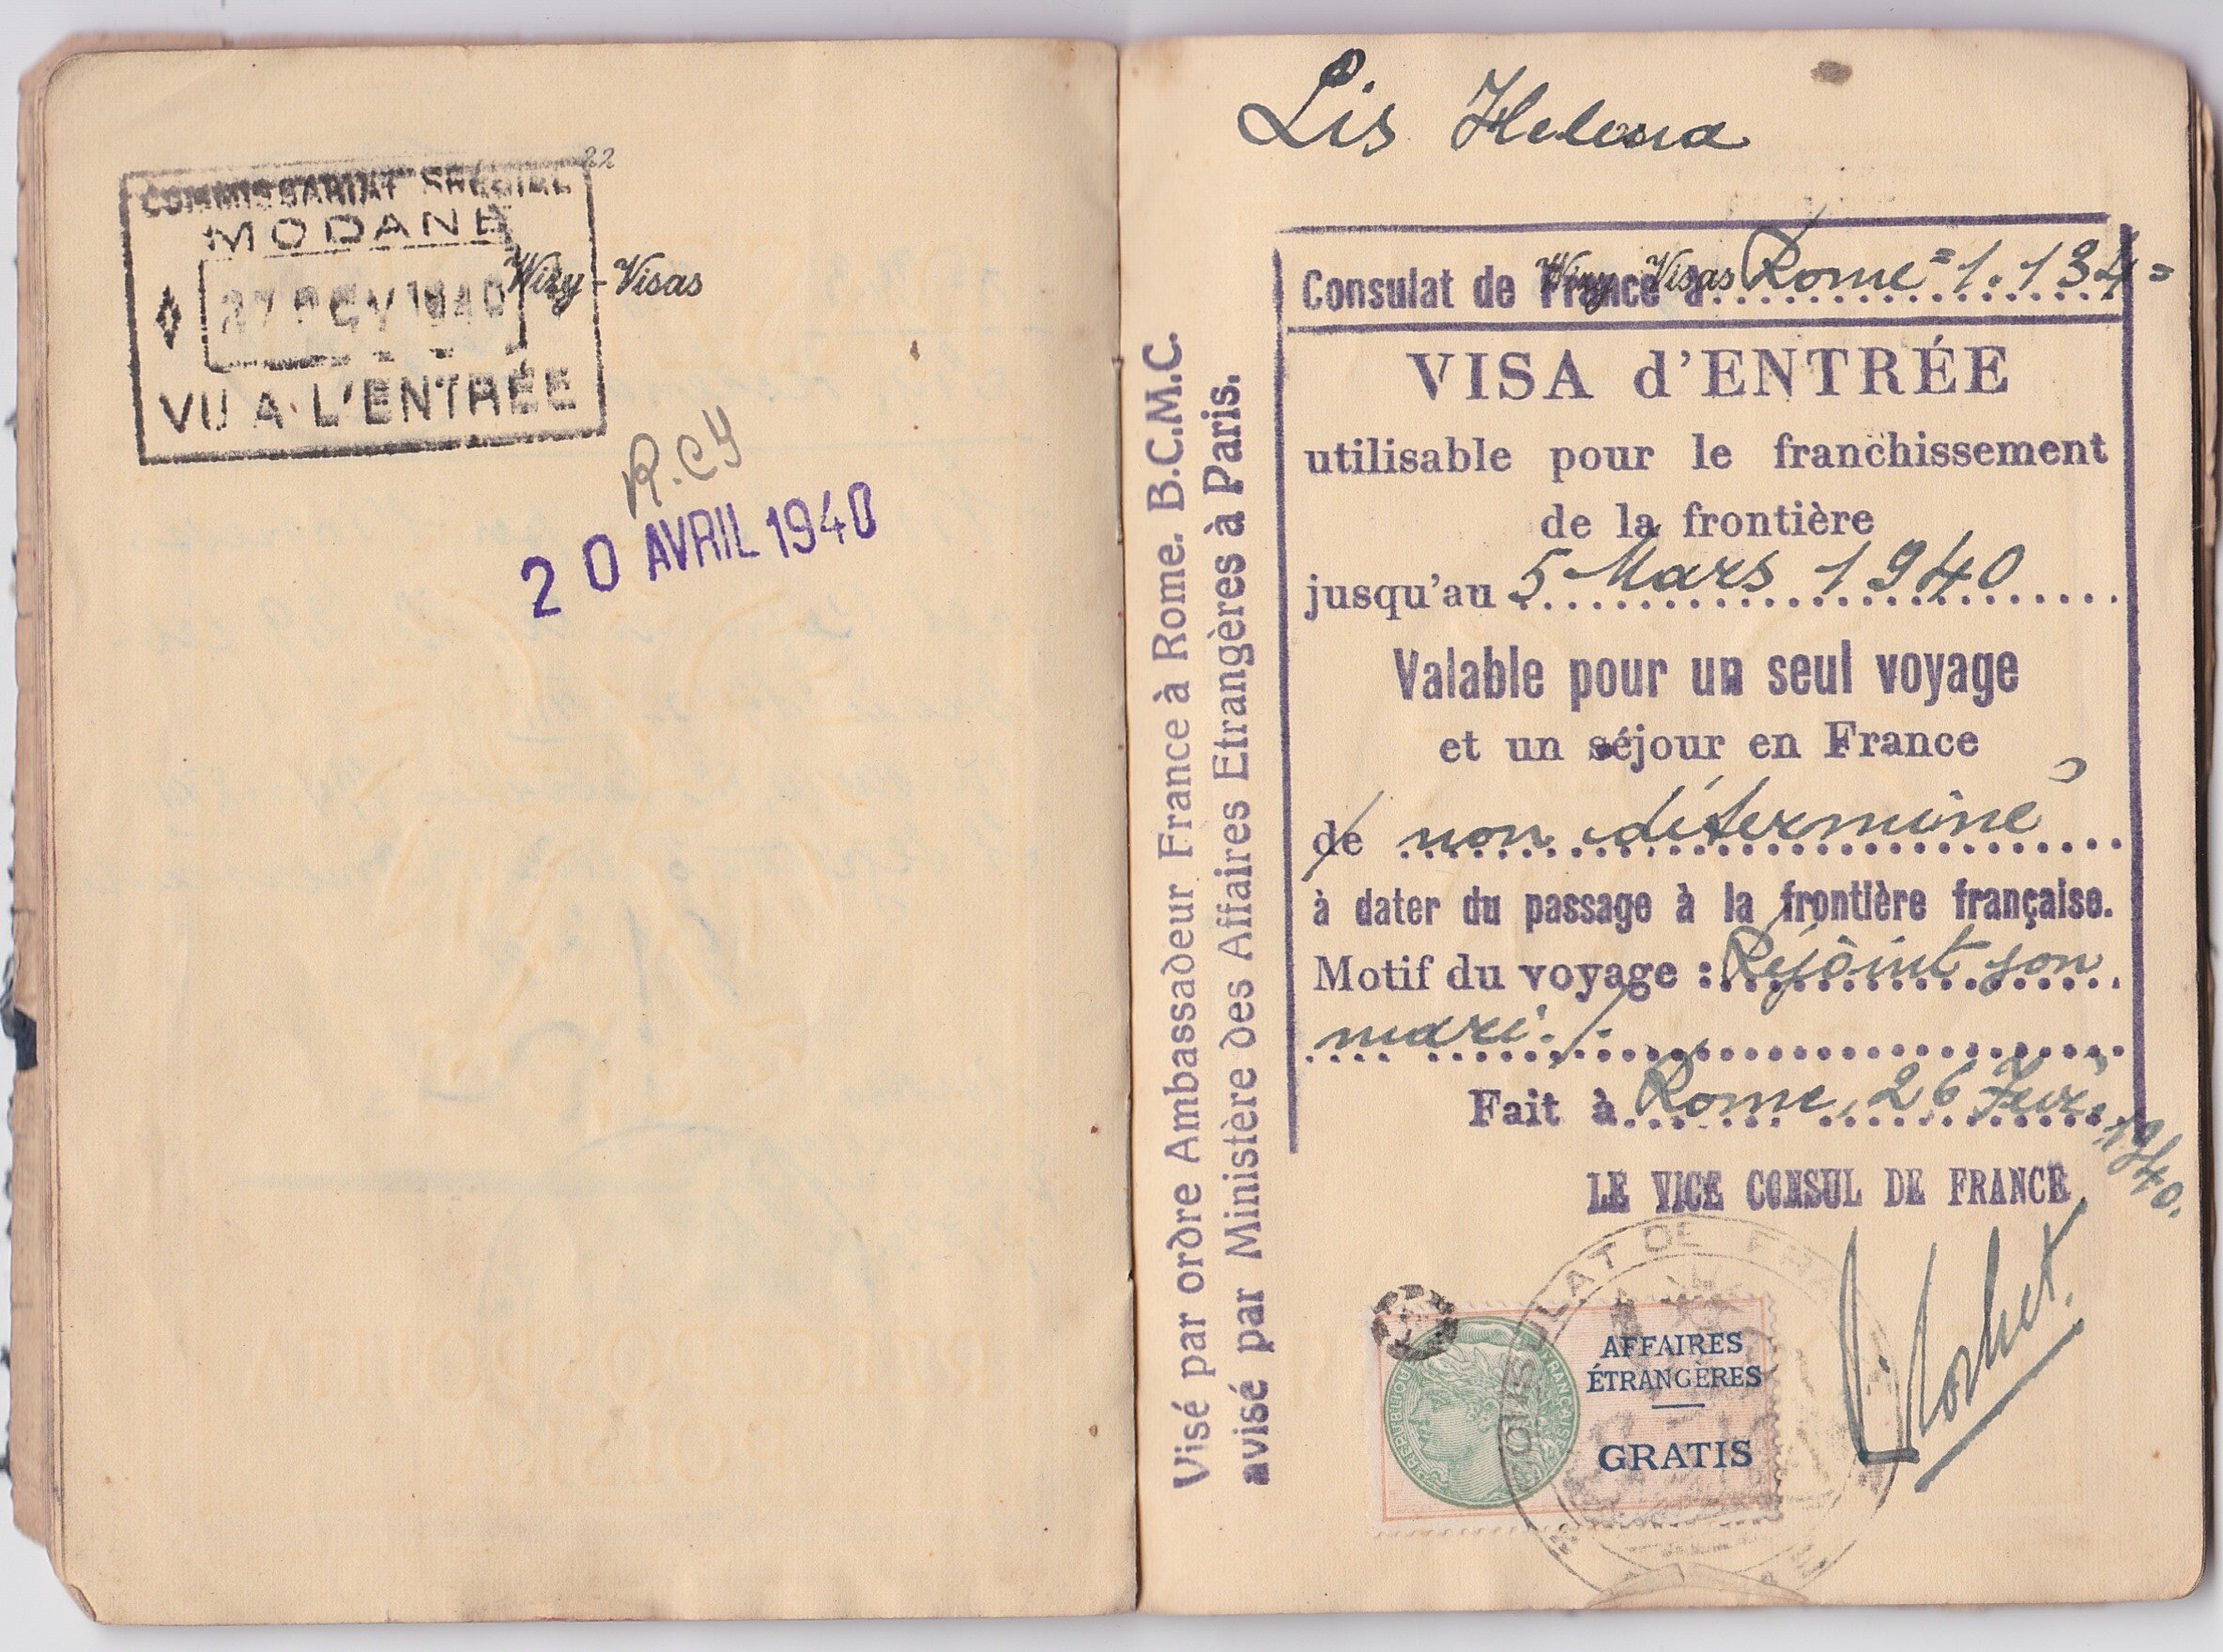 22
COMMISSARIAT SPÉCIAL
MODANE
Wizy-Visas
VU A L'ENTRÉE
R.CY
20 AVRIL 1940
Lis Helena
Consulat de France à Rome = 1.134 =
Wizy Visas
VISA d'ENTRÉE
utilisable pour le franchissement
de la frontière
jusqu'au 5 Mars 1940
Valable pour un seul voyage
et un séjour en France
de non déterminé
à dater du passage à la frontière française.
Motif du voyage : Rejoint son
mari. /.
Fait à Rome, 26 Fevr. 1940.
LE VICE CONSUL DE FRANCE
Visé par ordre Ambassadeur France à Rome. B.C.M.C.
avisé par Ministère des Affaires Etrangères à Paris.
RÉPUBLIQUE FRANÇAISE
AFFAIRES
ÉTRANGÈRES
GRATIS